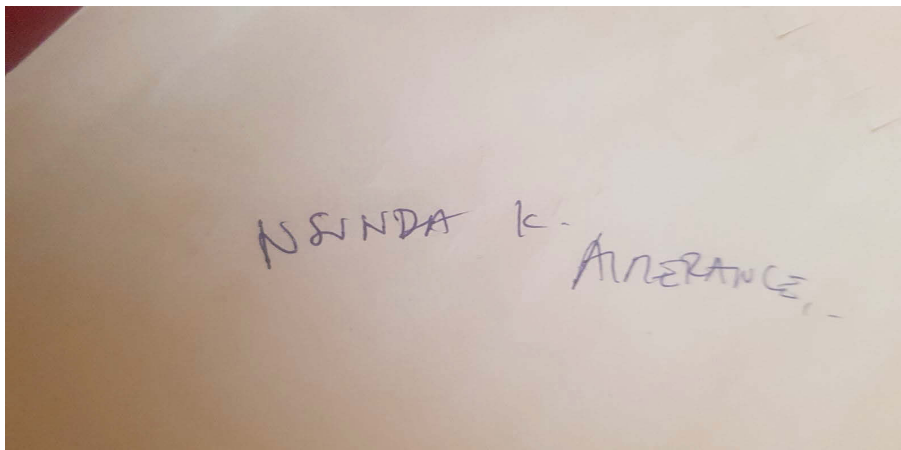 NSUNDA K.
AIMERANCE.